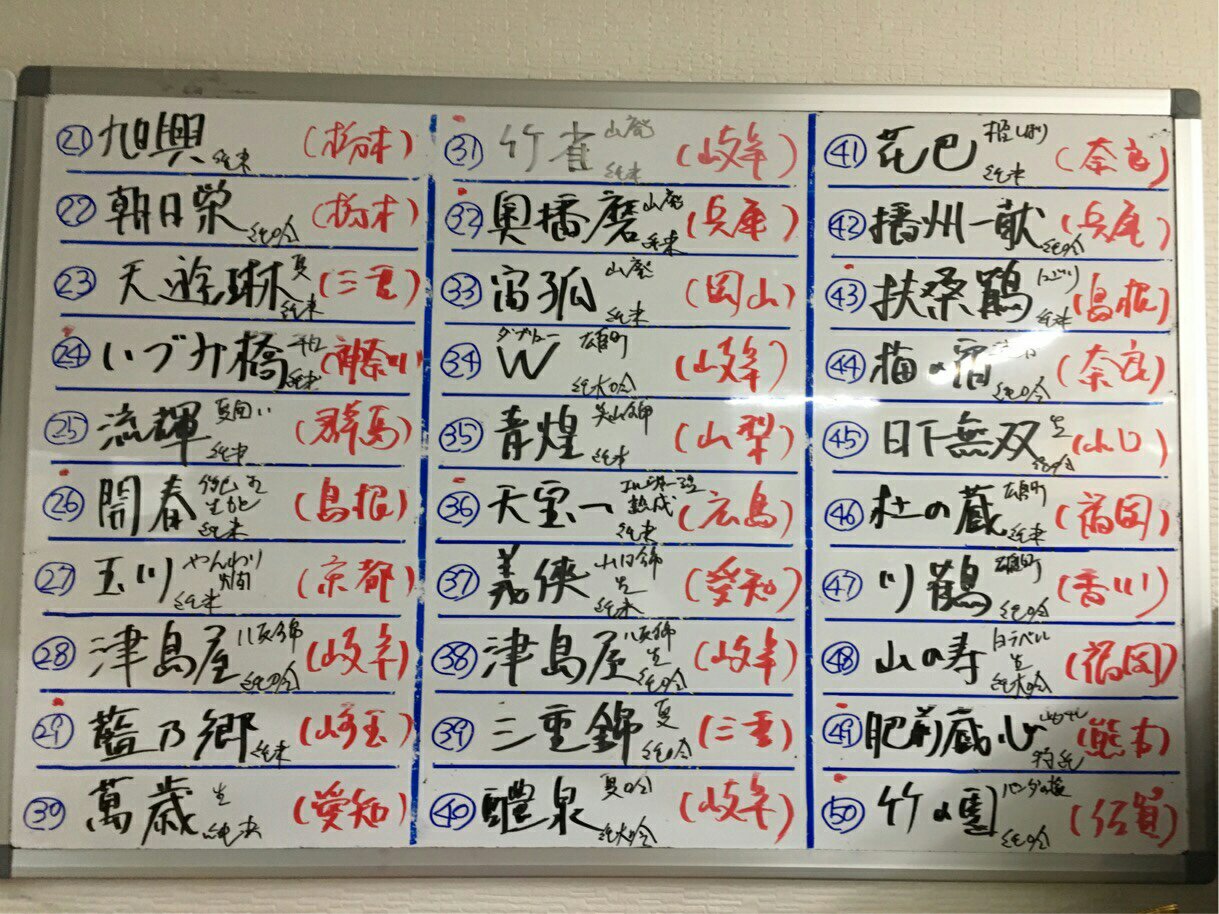 ㉑ 旭興 純米 (栃木)
㉒ 朝日栄 純吟 (栃木)
㉓ 天遊琳 夏 純米 (三重)
㉔ いづみ橋 純米 (神奈川)
㉕ 流輝 夏囲い 純米 (群馬)
㉖ 開春 生もと 純米 (島根)
㉗ 玉川 やんわり 純米 (京都)
㉘ 津島屋 八反錦 純吟 (岐阜)
㉙ 藍乃郷 純米 (埼玉)
㉚ 萬歳 生 純米 (愛知)
㉛ 竹雀 山廃 純米 (岐阜)
㉜ 奥播磨 山廃 純米 (兵庫)
㉝ 宙狐 山廃 純米 (岡山)
㉞ W ダブリュー 雄町 純大吟 (岐阜)
㉟ 青煌 美山錦 純米 (山梨)
㊱ 天宝一 熟成 純米 (広島)
㊲ 義侠 山田錦 生 純米 (愛知)
㊳ 津島屋 八反錦 生 純吟 (岐阜)
㊴ 三重錦 夏 純吟 (三重)
㊵ 醴泉 夏吟 純大吟 (岐阜)
㊶ 花巴 純米 (奈良)
㊷ 播州一献 純吟 (兵庫)
㊸ 扶桑鶴 にごり 純米 (島根)
㊹ 梅の宿 純吟 (奈良)
㊺ 日下無双 生 純吟 (山口)
㊻ 杜の蔵 雄町 純米 (福岡)
㊼ 川鶴 雄町 純吟 (香川)
㊽ 山の寿 白ラベル 生 純大吟 (福岡)
㊾ 肥前蔵心 特純 (熊本)
㊿ 竹の園 パンダの夜 純吟 (佐賀)